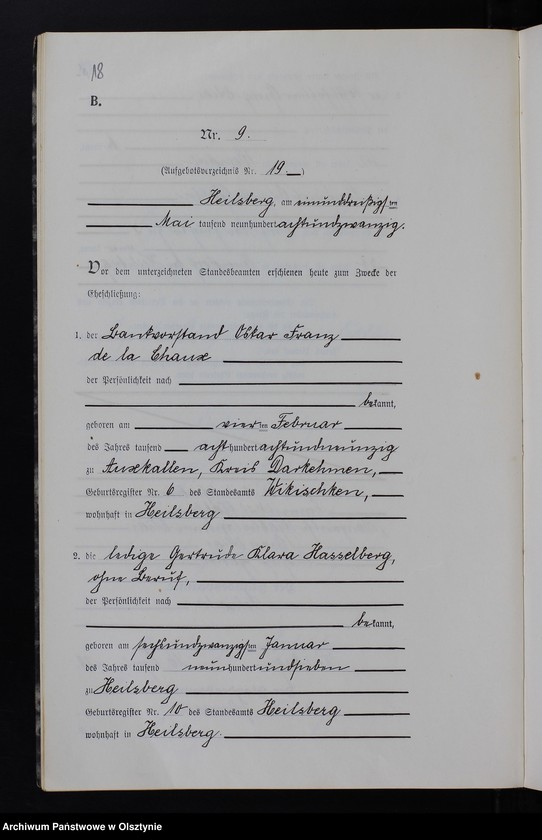 18
B.
Nr. 9.
(Aufgebotsverzeichnis Nr. 19.)
Heilsberg, am einunddreißigsten
Mai tausend neunhundert achtundzwanzig.
Vor dem unterzeichneten Standesbeamten erschienen heute zum Zwecke der
Eheschließung:
1. der Bankvorstand Oskar Franz
de la Chaux
der Persönlichkeit nach
bekannt,
geboren am vierten Februar
des Jahres tausend achthundert achtundneunzig
zu Auxkallen, Kreis Darkehmen,
Geburtsregister Nr. 6 des Standesamts Wikischken,
wohnhaft in Heilsberg
2. die ledige Gertrude Klara Hasselberg,
ohne Beruf,
der Persönlichkeit nach
bekannt,
geboren am sechsundzwanzigsten Januar
des Jahres tausend neunhundert und sieben
zu Heilsberg
Geburtsregister Nr. 10 des Standesamts Heilsberg
wohnhaft in Heilsberg.
Archiwum Państwowe w Olsztynie